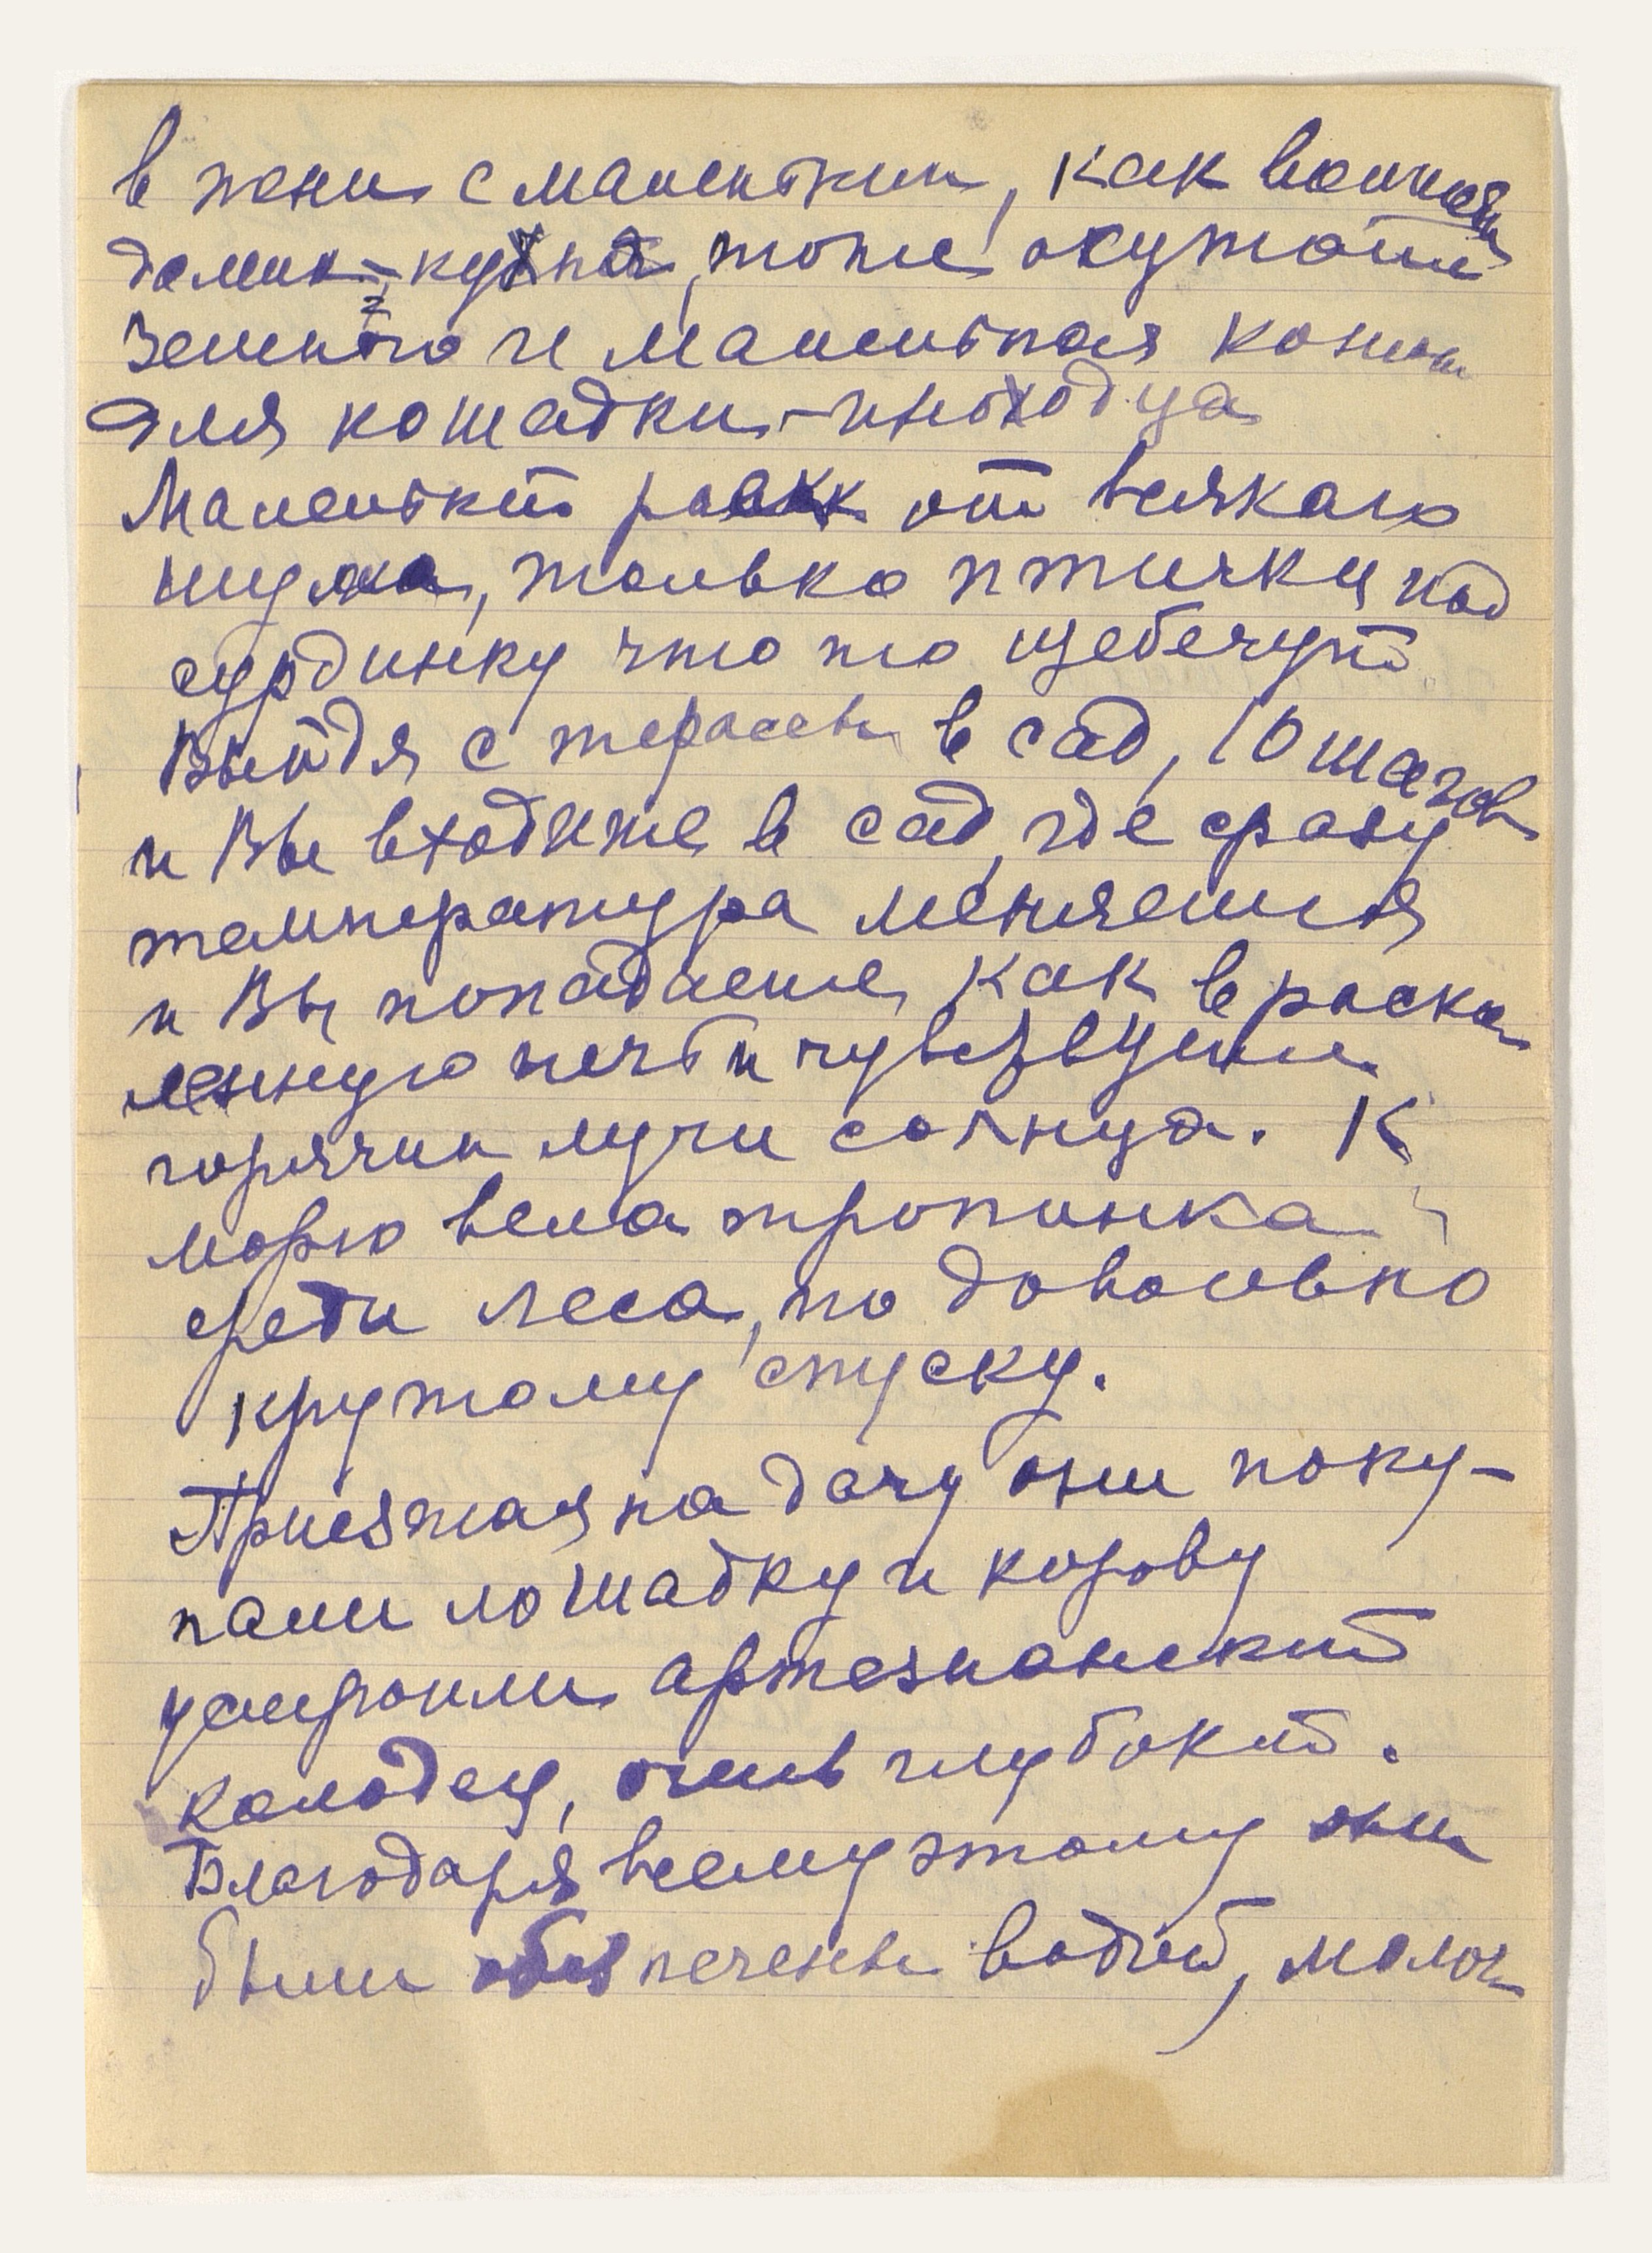 в тени с маленьким, как
домик-кухня, тоже окутан
зеленью и маленькая конюш
для лошадки-иноходца
Маленький от всякого
шума, только птички под
сурдинку что то щебечут
Выйдя с терассы в сад, 10 шагов
и Вы входите в сад, где сразу
температура меняется
и Вы попадаете, как в раска
ленную печь и
горячии лучи солнца. К
морю вела тропинка
среди леса, по довольно
крутому спуску.
Приезжая на дачу они поку-
пали лошадку и корову
устроили артезианский
колодец, очень глубокий.
Благодаря всему этому они
были обеспечены водой, молок